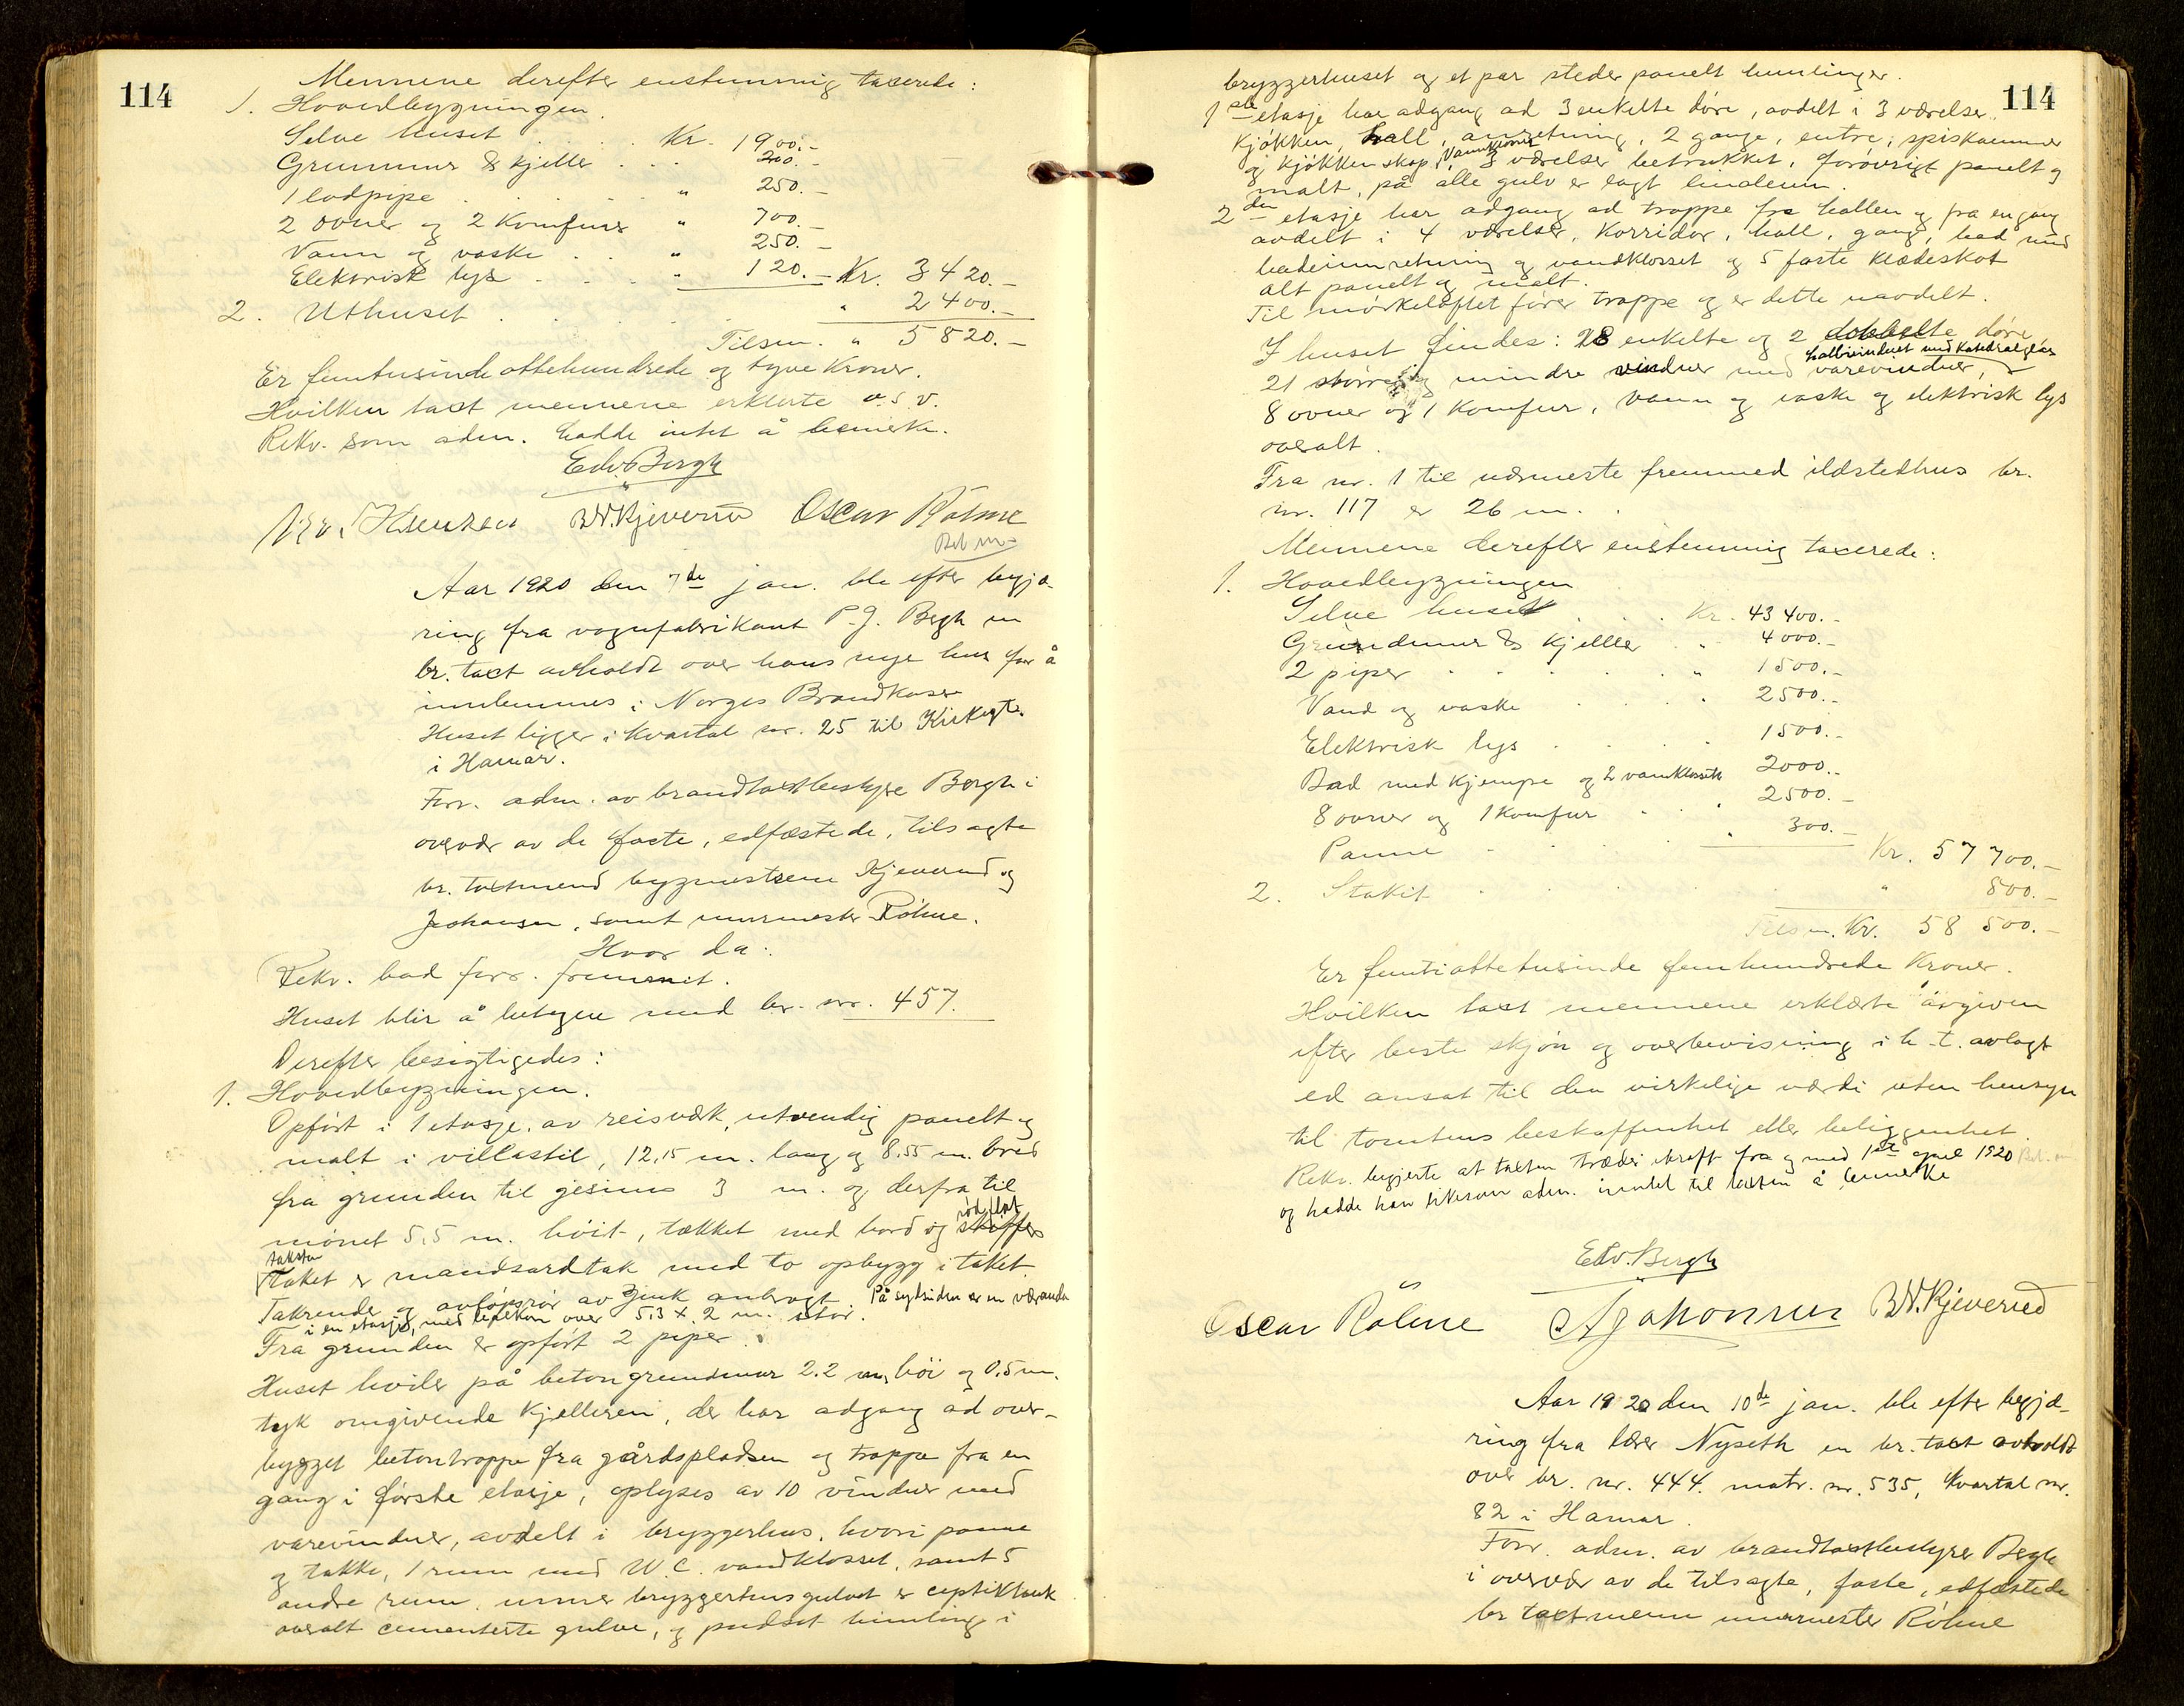 114
Mennene derefter enstemmig taxerede:
1. Hovedbygningen.
Selve huset . . . Kr. 1900.-
Grunnmur & kjeller . . . 200.-
1 lodpipe . . . " 250.-
2 ovner og 2 Komfurer " 700.-
Vann og vaske . . " 250.-
Elektrisk lys . . . " 120.- Kr. 3420.-
2. Uthuset . . . " 2400.-
Tilsm. " 5820.-
Er femtusinde ottehundrede og tyve Kroner.
Hvilken taxt mennene erklerte o.s.v.
Rekv. som adm. hadde intet å bemerke.
Edv. Bergh
B.N. Kjeverud Oscar Röhne
Aar 1920 den 7de jan. ble efter begjæ-
ring fra vognfabrikant P. J. Bergh en
br. taxt avholdt over hans nye hus for å
innlemmes i Norges Brandkasse
Huset ligger i Kvartal nr. 25 til Kirkegt.
i Hamar.
Forr. adm. av brandtaxtbestyre Bergh i
overvær av de faste, edfæstede, tilsagte
br. taxtmend bygmestrene Kjeverud og
Johansen, samt murmester Röhne.
Hvor da:
Rekv. bad forr. fremmet.
Huset blir å betegne med br. nr. 457.
Derefter besigtigedes:
1. Hovedbygningen.
Opført i 1 etasje, av reisverk, utvendig panelt og
malt i villastil, 12,15 m. lang og 8,55 m. bred
fra grunden til gesims 3 m. og derfra til
mønet 5,5 m. höit, tækket med bord og skiffer
rød flat
taksten
Taket er mandsardtak med to opbygg i taket.
Takrender og avløpsrör av zink anbragt. På sydsiden er en veranda
i en etasje, med balkon over 5.3 x 2 m. stor.
Fra grunden er opfört 2 piper.
Huset hviler på betongrundmur 2.2 m. höi og 0,5 m.
tyk omgivende kjelleren, der har adgang ad over-
bygget betontroppe fra gårdspladsen og trappe fra en
gang i første etasje, oplyses av 10 vinduer med
varevinduer, avdelt i bryggerhus, hvori panne
og takke, 1 rum med W.C. vandklosset, samt 5
andre rum, under bryggerhusgulvet er ceptiktank
overalt cementerte gulve, og pudset himling i
114
bryggerhuset og et par steder panelt himlinger.
1ste etasje har adgang ad 3 enkelte döre, avdelt i 3 værelser,
kjøkken, hall, anretning, 2 gange, entre, spiskammer
og kjøkkenskap, 3 værelser betrukket, forøvrigt panelt og
malt, på alle gulv er lagt linoleum.
2den etasje har adgang ad trappe fra hallen og fra en gang
avdelt i 4 værelser, Korridor, hall, gang, bad med
badeinnretning og vandklosset og 5 faste klædeskot
alt panelt og malt.
Til mørkeloftet fører trappe og er dette uavdelt.
I huset findes: 28 enkelte og 2 dobbelte döre
21 större og mindre vinduer med varevinduer, hallvinduet med Katedralglas
8 ovner og 1 Komfur, vann og vaske og elektrisk lys
overalt.
Fra nr. 1 til nærmeste fremmed ildstedhus br.
nr. 117 er 26 m.
Mennene derefter enstemmig taxerede:
1. Hovedbygningen
Selve huset . . . Kr. 43400.-
Grundmur & kjeller . " 4000.-
2 piper . . . " 1500.-
Vand og vaske . . . 2500.-
Elektrisk lys . . . 1500.-
Bad med Kjempe og 2 vannklosset 2000.-
8 ovner og 1 komfur . " 2500.-
Panne . . . " 300.-
Kr. 57700.-
2. Stakit . . . " 800.-
Tilsm. Kr. 58 500.-
Er femtiottetusinde femhundrede Kroner.
Hvilken taxt mennene erklærte avgiven
efter beste skjön og overbevisning i h. t. avlagt
ed ansat til den virkelige værdi uten hensyn
til tomtens beskaffenhet eller beliggenhet.
Rekv. begjerte at taxten træder ikraft fra og med 1ste april 1920
og hadde han likesom adm. inntet til taxten å bemerke
Edv. Bergh
Oscar Röhne A Johansen B.N. Kjeverud
Aar 1920 den 10de jan. ble efter begjæ-
ring fra lærer Nyseth en br. taxt avholdt
over br. nr. 444. matr. nr. 535, Kvartal nr.
82 i Hamar.
Forr. adm. av brandtaxtbestyrer Bergh
i overvær av de tilsagte, faste, edfæstede
br taxtmenn murmester Röhne